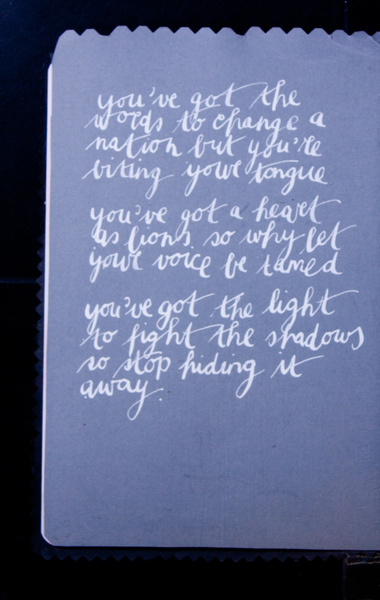 you've got the
words to change a
nation but you're
biting your tongue
you've got a heart
as lions so why let
your voice be tamed
you've got the light
to fight the shadows
so stop hiding it
away.